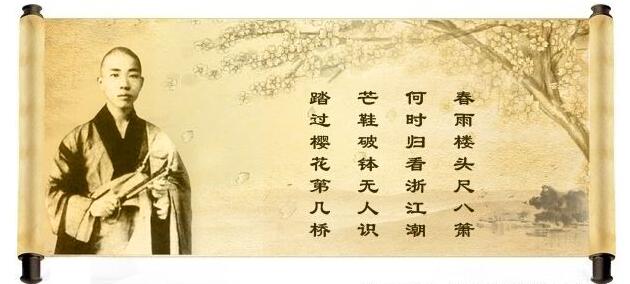 春雨楼头尺八萧
何时归看浙江潮
芒鞋破钵无人识
踏过樱花第几桥